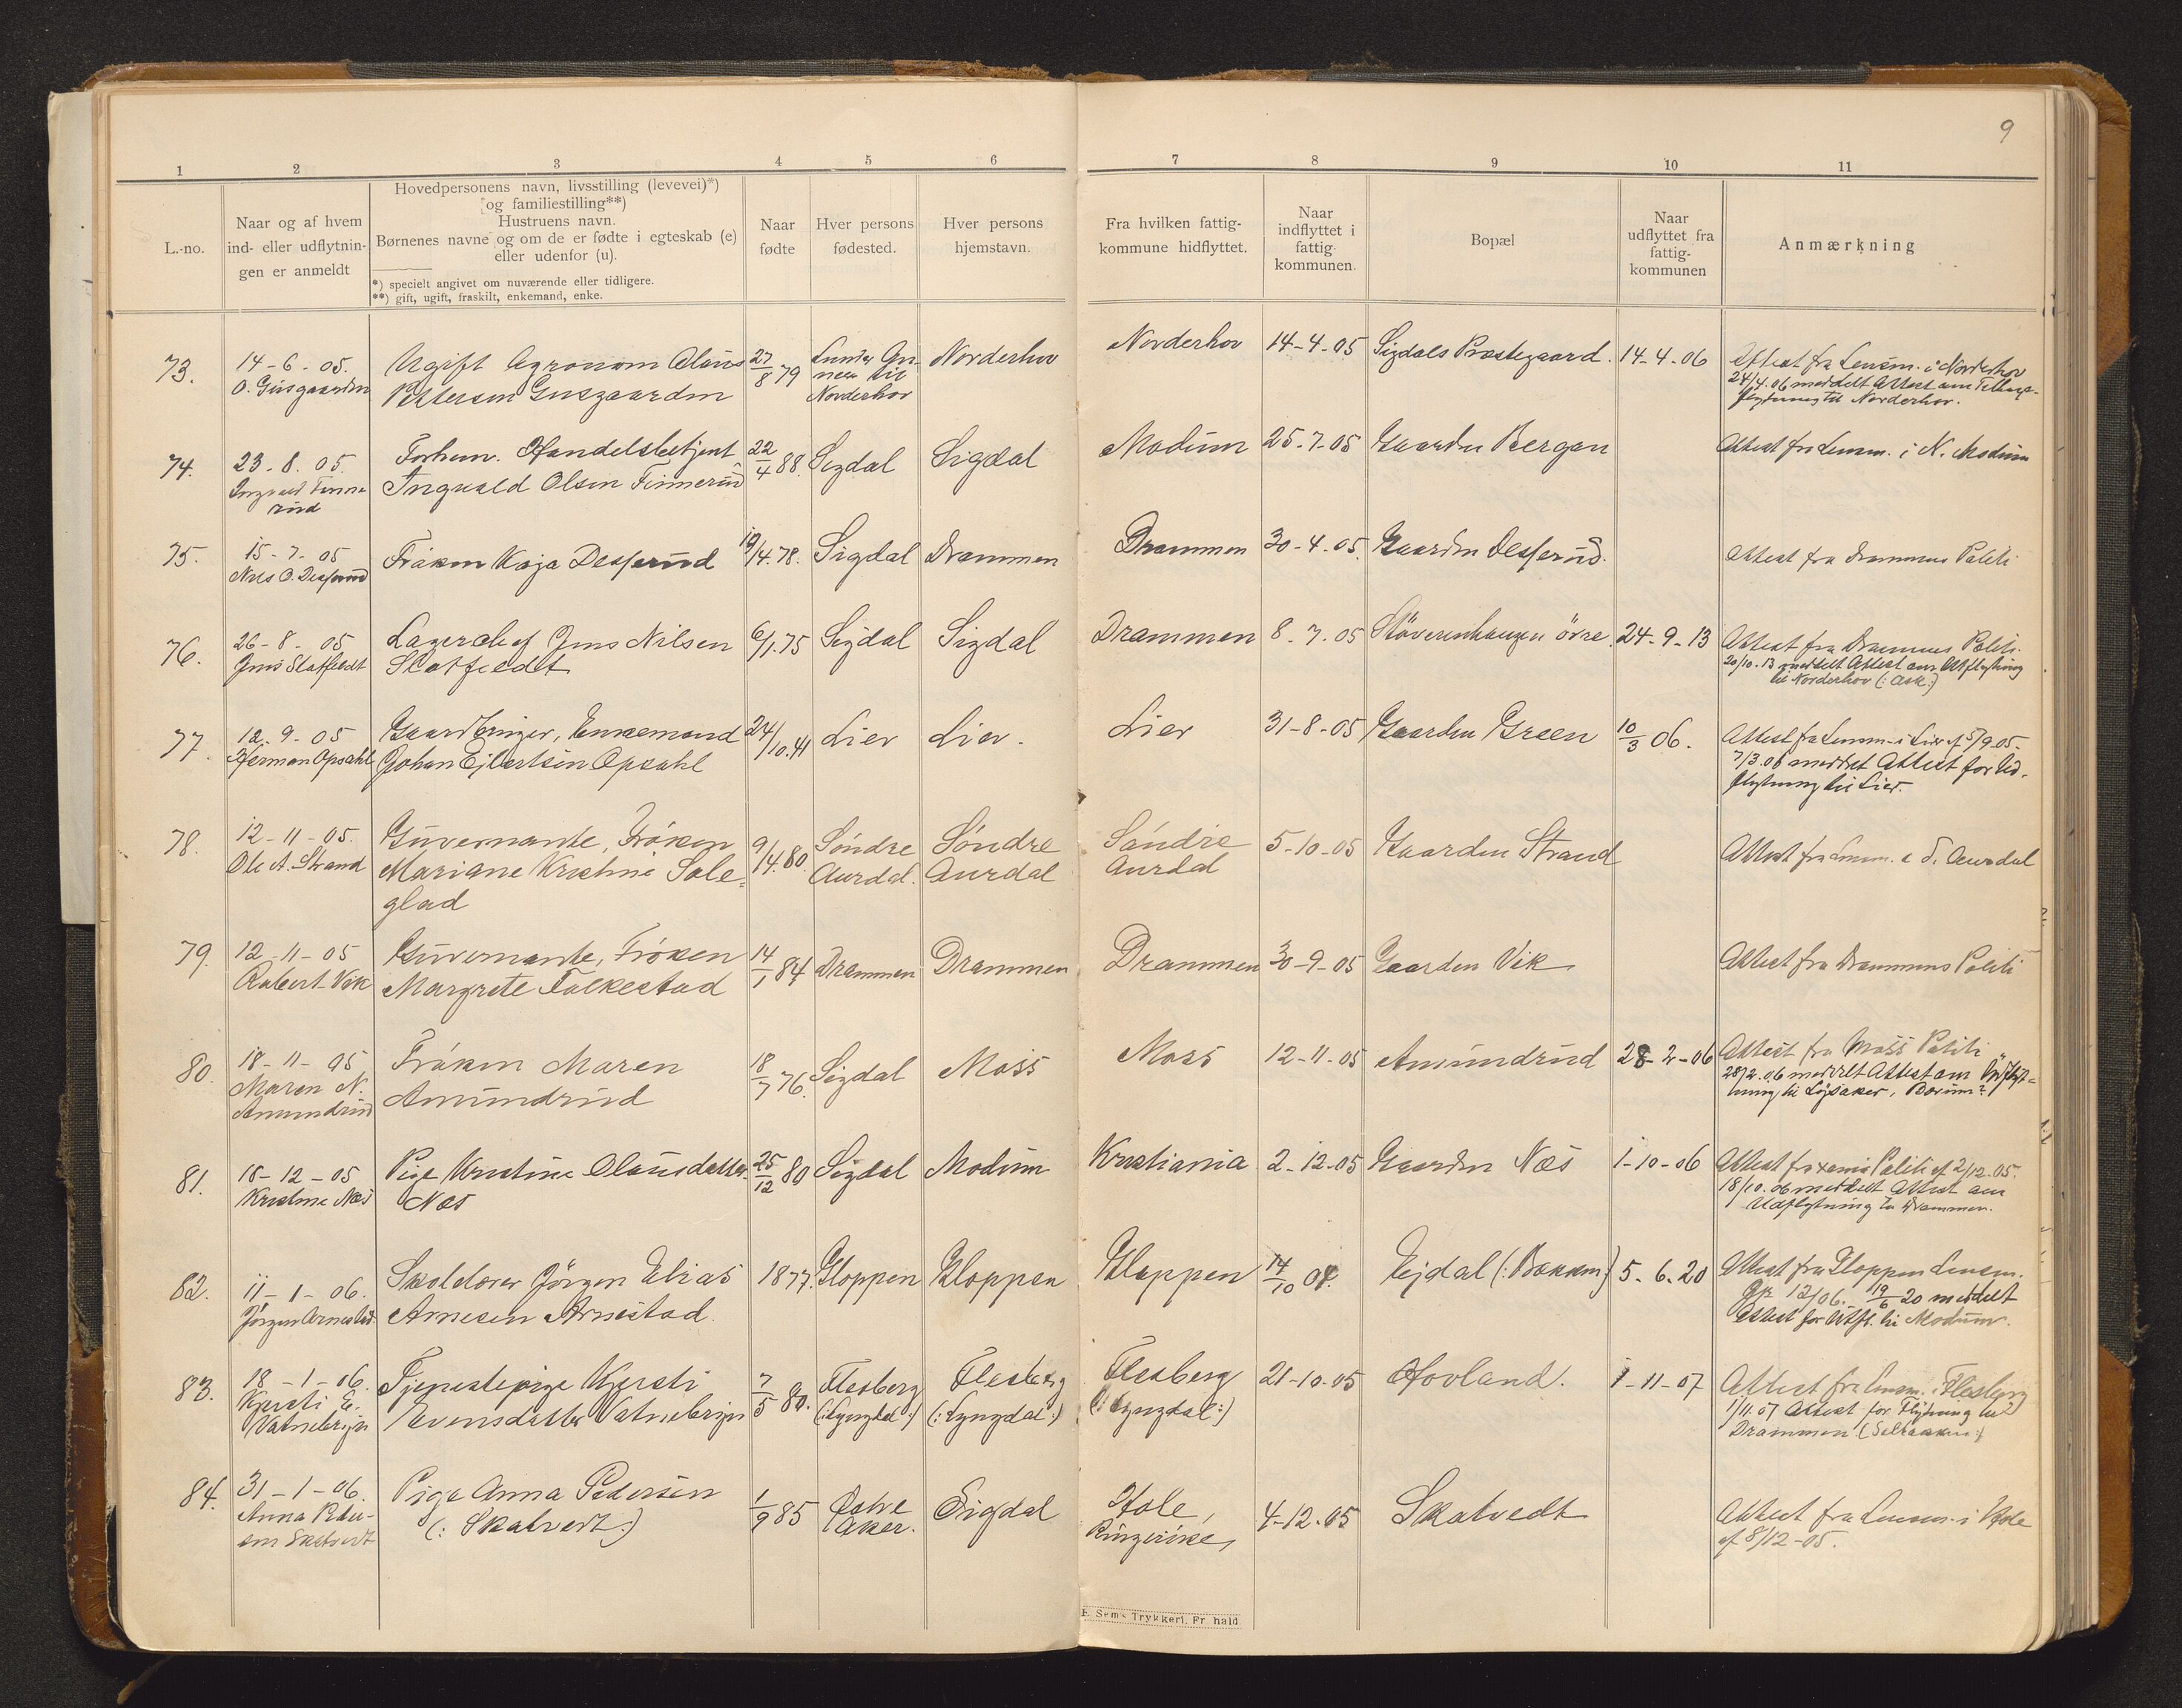 9
1 2 3 4 5 6 7 8 9 10 11
L.-no.
Naar og af hvem
ind- eller udflytnin-
gen er anmeldt
Hovedpersonens navn, livsstilling (levevei)*)
og familiestilling**)
Hustruens navn.
Børnenes navne og om de er fødte i egteskab (e)
eller udenfor (u).
*) specielt angivet om nuværende eller tidligere.
**) gift, ugift, fraskilt, enkemand, enke.
Naar
fødte
Hver persons
fødested.
Hver persons
hjemstavn.
Fra hvilken fattig-
kommune hidflyttet.
Naar
indflyttet i
fattig-
kommunen.
Bopæl
Naar
udflyttet fra
fattig-
kommunen
Anmærkning
73.
14-6-05.
O. Gusgaarden
Ugift Agronom Olaus
Pettersen Gusgaarden
27/8 79
Lunder An-
nex til
Norderhov
Norderhov
Norderhov
14-4-05
Sigdals Præstegaard.
14-4-06
Attest fra Lensm. i Norderhov
24/4.06 meddelt Attest om
flytning til Norderhov.
74.
23-8.05.
Ingvald Finne
rud
Forhen. Handelsbetjent
Ingvald Olsen Finnerud
22/4 88.
Sigdal
Sigdal
Modum
25-7-05
Gaarden Bergan
Attest fra Lensm. i N. Modum
75.
15-7-05
Nils O. Desserud
Frøken Kaja Desserud
19/4.78.
Sigdal
Drammen
Drammen
30-4-05.
Gaarden Desserud.
Attest fra Drammens Politi
76.
26-8-05
Jens Slatfeldt
Lagerchef Jens Nilsen
Slatfeldt
6/1.75
Sigdal
Sigdal
Drammen
8-7-05
Støverenhaugen øvre
24-9-13
Attest fra Drammens Politi.
20/10-13 meddelt Attest om Utflytning
til Norderhov (: Ask:)
77.
12-9-05
Herman Opsahl
Gaardbruger, Enkemand
Johan Ejlertsen Opsahl
24/10.41
Lier
Lier.
Lier
31-8-05
Gaarden Green
10/3 06.
Attest fra Lensm. i Lier af 5/9-05.
7/3.06 meddelt Attest for Ud-
flytning til Lier.
78.
12-11-05.
Ole A. Strand
Guvernante, Frøken
Mariane Kristine Sole-
glad
9/14.80.
Søndre
Aurdal.
Søndre
Aurdal
Søndre
Aurdal
5-10-05
Gaarden Strand
Attest fra Lensm. i S. Aurdal
79.
12-11-05
Robert Vik
Guvernante, Frøken
Margrete Falkestad
14/1 84
Drammen
Drammen
Drammen
30-9-05
Gaarden Vik
Attest fra Drammens Politi
80.
18-11-05
Maren N.
Amundrud
Frøken Maren
Amundrud
18/7 76.
Sigdal
Moss
Moss
12-11-05
Amundrud
28-2-06
Attest fra Moss Politi
28/2.06 meddelt Attest om Udflyt-
ning til Lysaker, Bærum.
81.
18-12-05
Kristine Næs
Pige Kristine Olausdatter
Næs
25/12 80
Sigdal
Modum
Kristiania
2-12-05
Gaarden Næs
1-10-06
Attest fra Xania Politi af 2/12.05.
18/10.06 meddelt Attest om
Udflytning til Drammen.
82.
11-1-06.
Jørgen Arnestad
Skolelærer Jørgen Elias
Arnesen Arnestad.
1877.
Gloppen
Gloppen
Gloppen
14/10 04.
Ejdal (: Bakken:)
5.6.20
Attest fra Gloppen Lensm.
12/06. 19/6 20 meddelt
Attest for Utfl. til Modum.
83.
18-1-06.
Kjersti E.
Vatnebryn
Tjenestepige Kjersti
Evensdatter Vatnebryn
7/5 80.
Flesberg
(: Lyngdal:)
Flesberg
(: Lyngdal:)
Flesberg
(: Lyngdal:)
21-10-05
Hovland.
1-11-07
Attest fra Lensm. i Flesberg
1/11.07 Attest for Flytning til
Drammen.
84.
31-1-06.
Anna Peder-
sen Skatvedt
Pige Anna Pedersen
(: Skatvedt:)
1/9 85
Østre
Aker.
Sigdal
Hole,
Ringerike,
4-12-05
Skatvedt
Attest fra Lensm. i Hole
af 8/12-05.
E. Sem's Trykkeri, Fr.hald